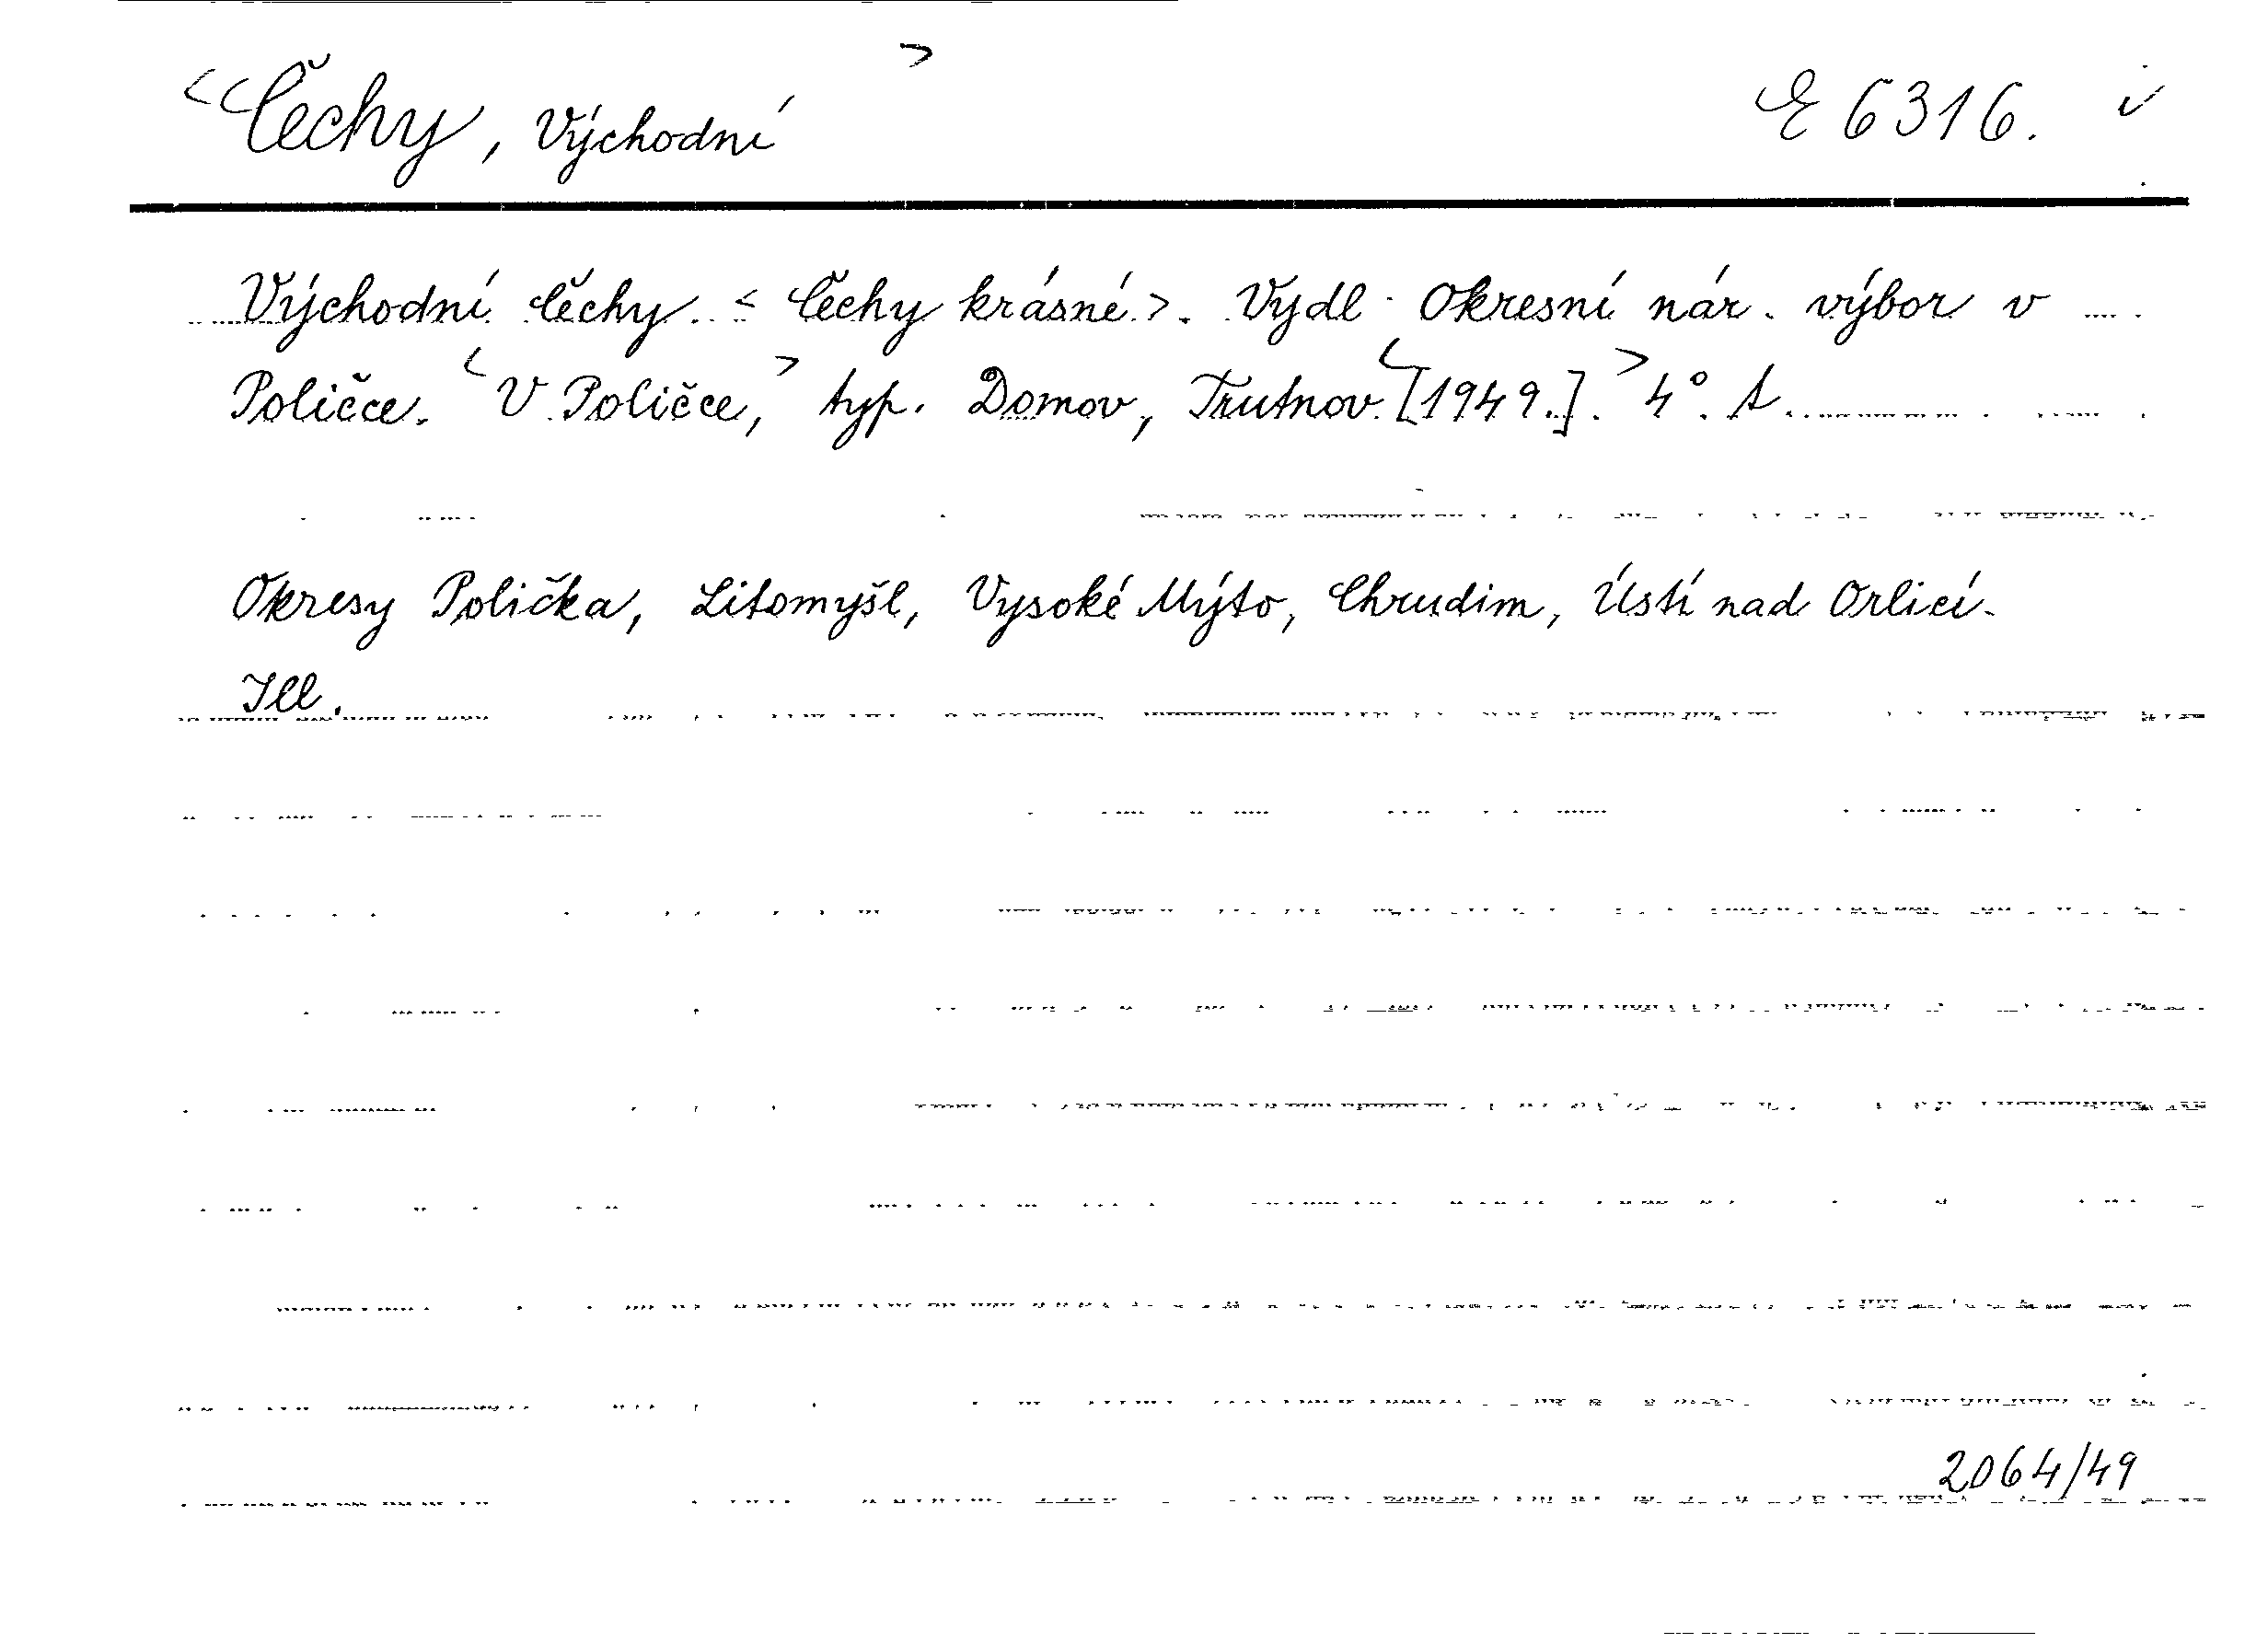 <Čechy, Východní> E 6316. ✓
Východní Čechy. <Čechy krásné>. Vydl. Okresní nár. výbor v
Poličce. <V Poličce,> typ. Domov, Trutnov. <[1949.].> 4°. A.
Okresy Polička, Litomyšl, Vysoké Mýto, Chrudim, Ústí nad Orlicí.
Ill.
2064/49